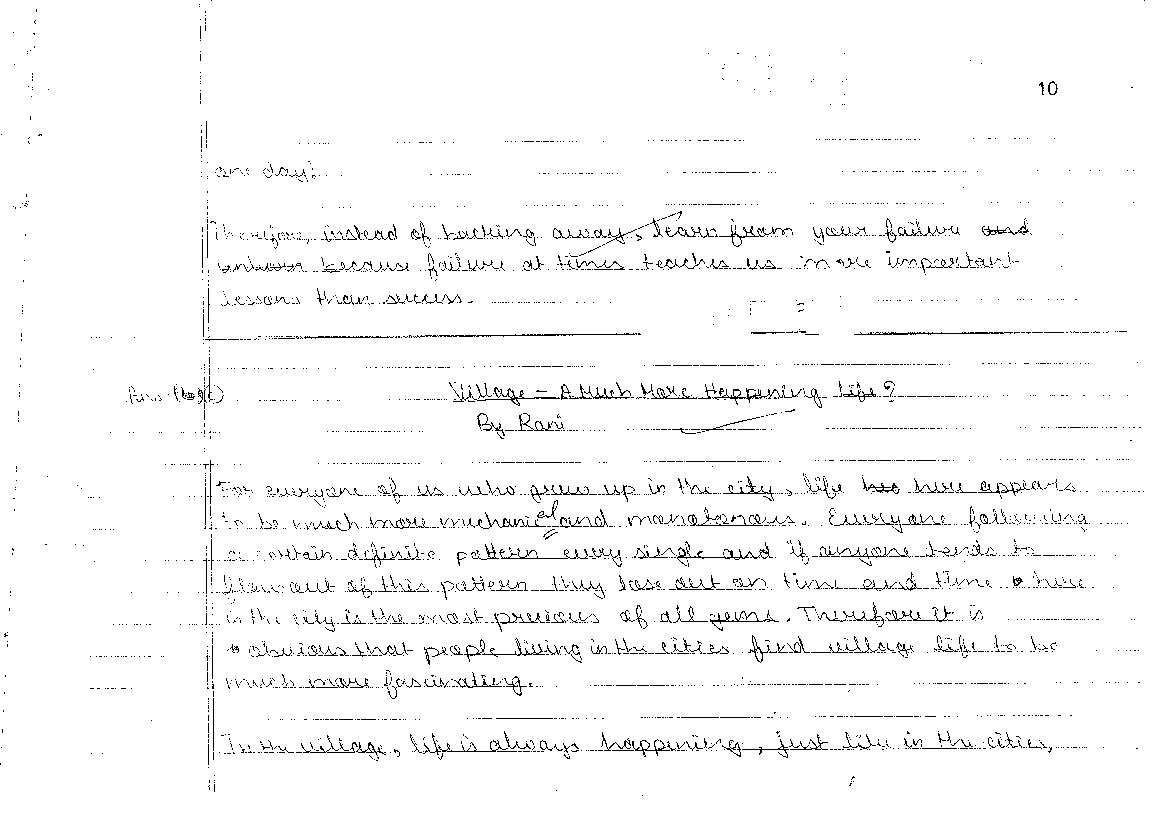 10
one day!
Therefore, instead of backing away, learn from your failure and
because failure at times teaches us more important
lessons than success.
Ans
Village – A Much More Happening Life?
By Rani
For everyone of us who grew up in the city, life has here appears
to be much more mechanical and monotonous. Everyone following
a certain definite pattern every single and if anyone tends to
out of this pattern they lose out on time and time here
in the city is the most precious of all gems. Therefore it is
obvious that people living in the cities find village life to be
much more fascinating.
In the village, life is always happening, just like in the cities,